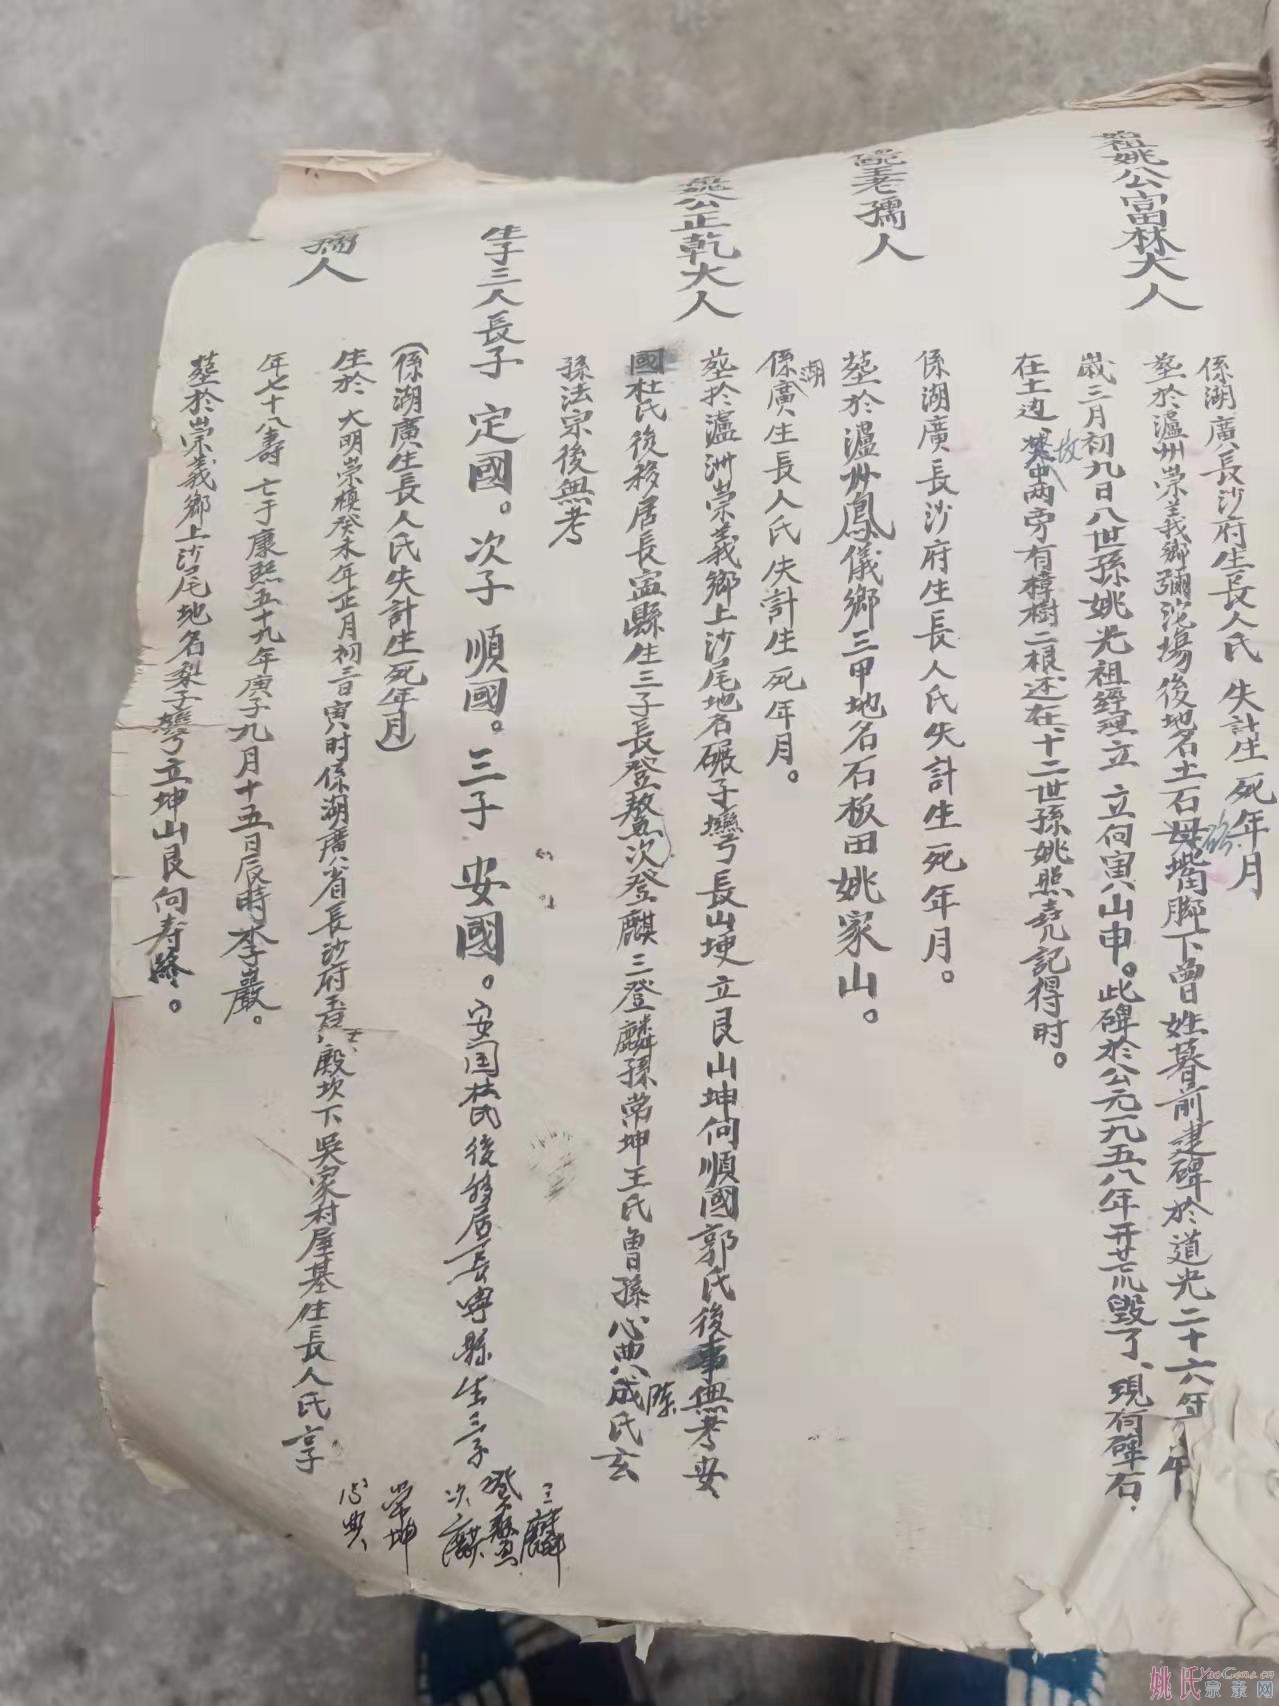 始祖姚公富林大人
係湖廣長沙府生長人氏 失計生死年月
塟於瀘州崇義鄉彌沱場後地名土石母嘴脚下曾姓暮前建碑於道光二十六年 午
歲三月初九日八世孫姚光祖經理立 立向寅山申。此碑於公元一九五八年开荒毀了、現有碑石
在土边、坟中两旁有樟樹二根还在、十二世孫姚照堯記得时。
老孺人
係湖廣長沙府生長人氏失計生死年月。
塟於瀘州鳳儀鄉三甲地名石板田姚家山。
姚公正乾大人
係湖廣生長人氏失計生死年月。
塟扵瀘洲崇義鄉上沙尾地名碾子灣長山埂立艮山坤向順國郭氏後事無考安
國杜氏後移居長寍縣生三子長登鰲次登麒三登麟孫常坤王氏曾孫心典成氏玄
陈
孫法宗後無考
生子三人長子 定國。次子 順國。三子 安國。安国杜氏後移居長寧縣生三子
三麟
登鰲
次麒
常坤
心典
孺人
(係湖廣生長人氏失計生死年月)
生於 大明崇楨癸未年正月初三日寅时係湖廣省長沙府 殿坎下吳家村屋基生長人氏享
年七十八壽 亡于康熙五十九年庚子九月十五日辰時李嚴。
塟於崇義鄉上沙尾地名梨子灣立坤山艮向寿終。
姚氏宗亲网
YaoGens.cn